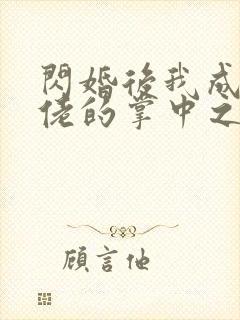 閃婚後我成
佬的掌中之
顧言他